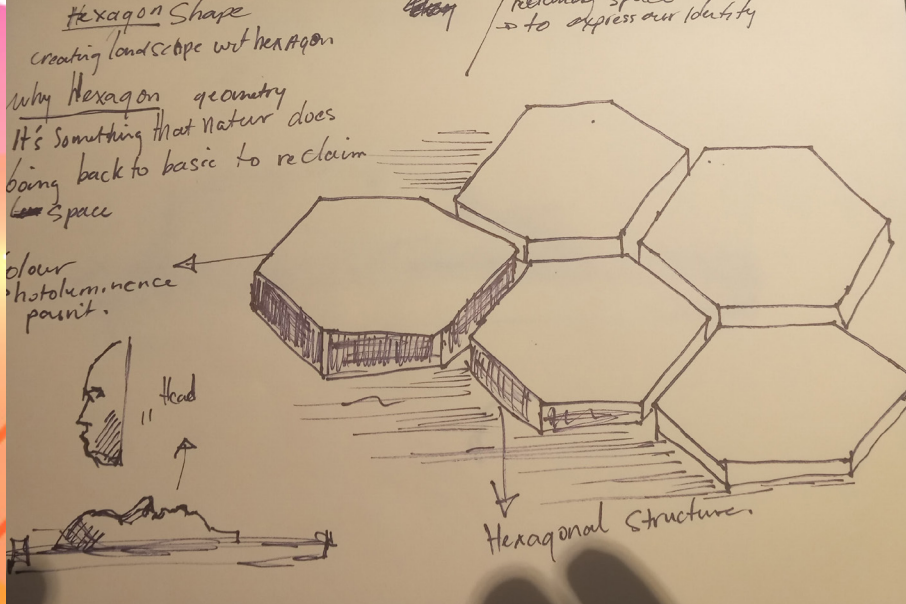 Hexagon Shape
creating landscape wit hexagon
why Hexagon geometry
It's Something that natur does
boing back to basic to reclaim
space
space
→ to express our Identity
olour
hotoluminence
paint.
"Head
Hexagonal Structure.